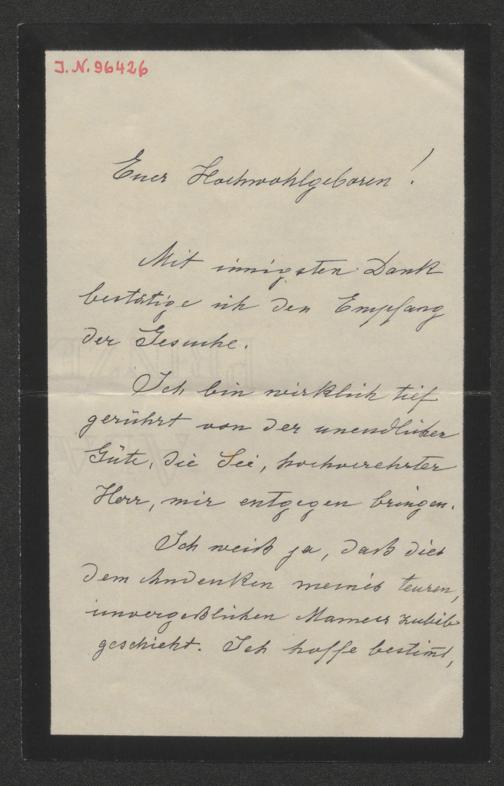 J.N. 96426
Euer Hochwohlgeboren!
Mit innigsten Dank
bestätige ich den Empfang
der Gesuche.
Ich bin wirklich tief
gerührt von der unendlichen
Güte, die Sie, hochverehrter
Herr, mir entgegen bringen.
Ich weiß ja, daß dies
dem Andenken meines teuren,
unvergeßlichen Mannes zulieb
geschieht. Ich hoffe bestimt,